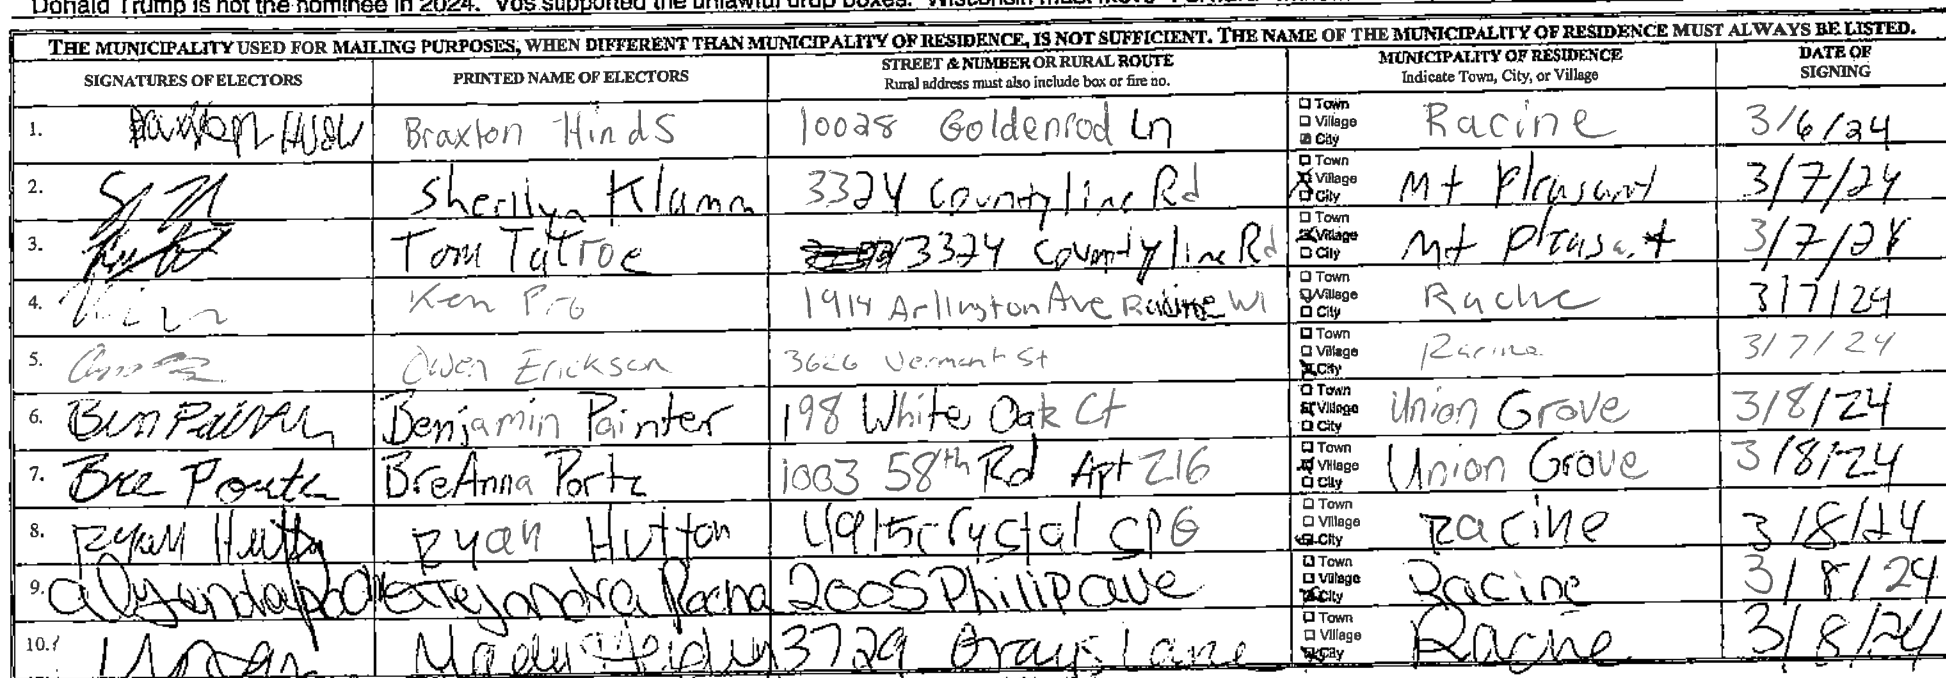 Donald Trump is not the nominee in 2024. Vos supported the unlawful drop boxes. Wisconsin must move
THE MUNICIPALITY USED FOR MAILING PURPOSES, WHEN DIFFERENT THAN MUNICIPALITY OF RESIDENCE, IS NOT SUFFICIENT. THE NAME OF THE MUNICIPALITY OF RESIDENCE MUST ALWAYS BE LISTED.
SIGNATURES OF ELECTORS PRINTED NAME OF ELECTORS STREET & NUMBER OR RURAL ROUTE MUNICIPALITY OF RESIDENCE DATE OF SIGNING
Rural address must also include box or fire no. Indicate Town, City, or Village
1. Braxton Hinds 10028 Goldenrod Ln Town Village City Racine 3/6/24
2. Sherilyn Klamm 3324 County line Rd Town Village City Mt Pleasant 3/7/24
3. Tom Tatroe 3324 County line Rd Town Village City Mt Pleasant 3/7/24
4. Ken 1914 Arlington Ave Racine WI Town Village City Racine 3/7/24
5. Owen Erickson 3626 Vermont St Town Village City Racine 3/7/24
6. Ben Painter Benjamin Painter 198 White Oak Ct Town Village City Union Grove 3/8/24
7. Bre Porte BreAnna Porte 1003 58th Rd Apt 216 Town Village City Union Grove 3/8/24
8. Ryan Hutton Ryan Hutton 4915 Crystal Town Village City Racine 3/8/24
9. Alejandra Rocha 2005 Philip ave Town Village City Racine 3/8/24
10. 3729 Grays Lane Town Village City Racine 3/8/24